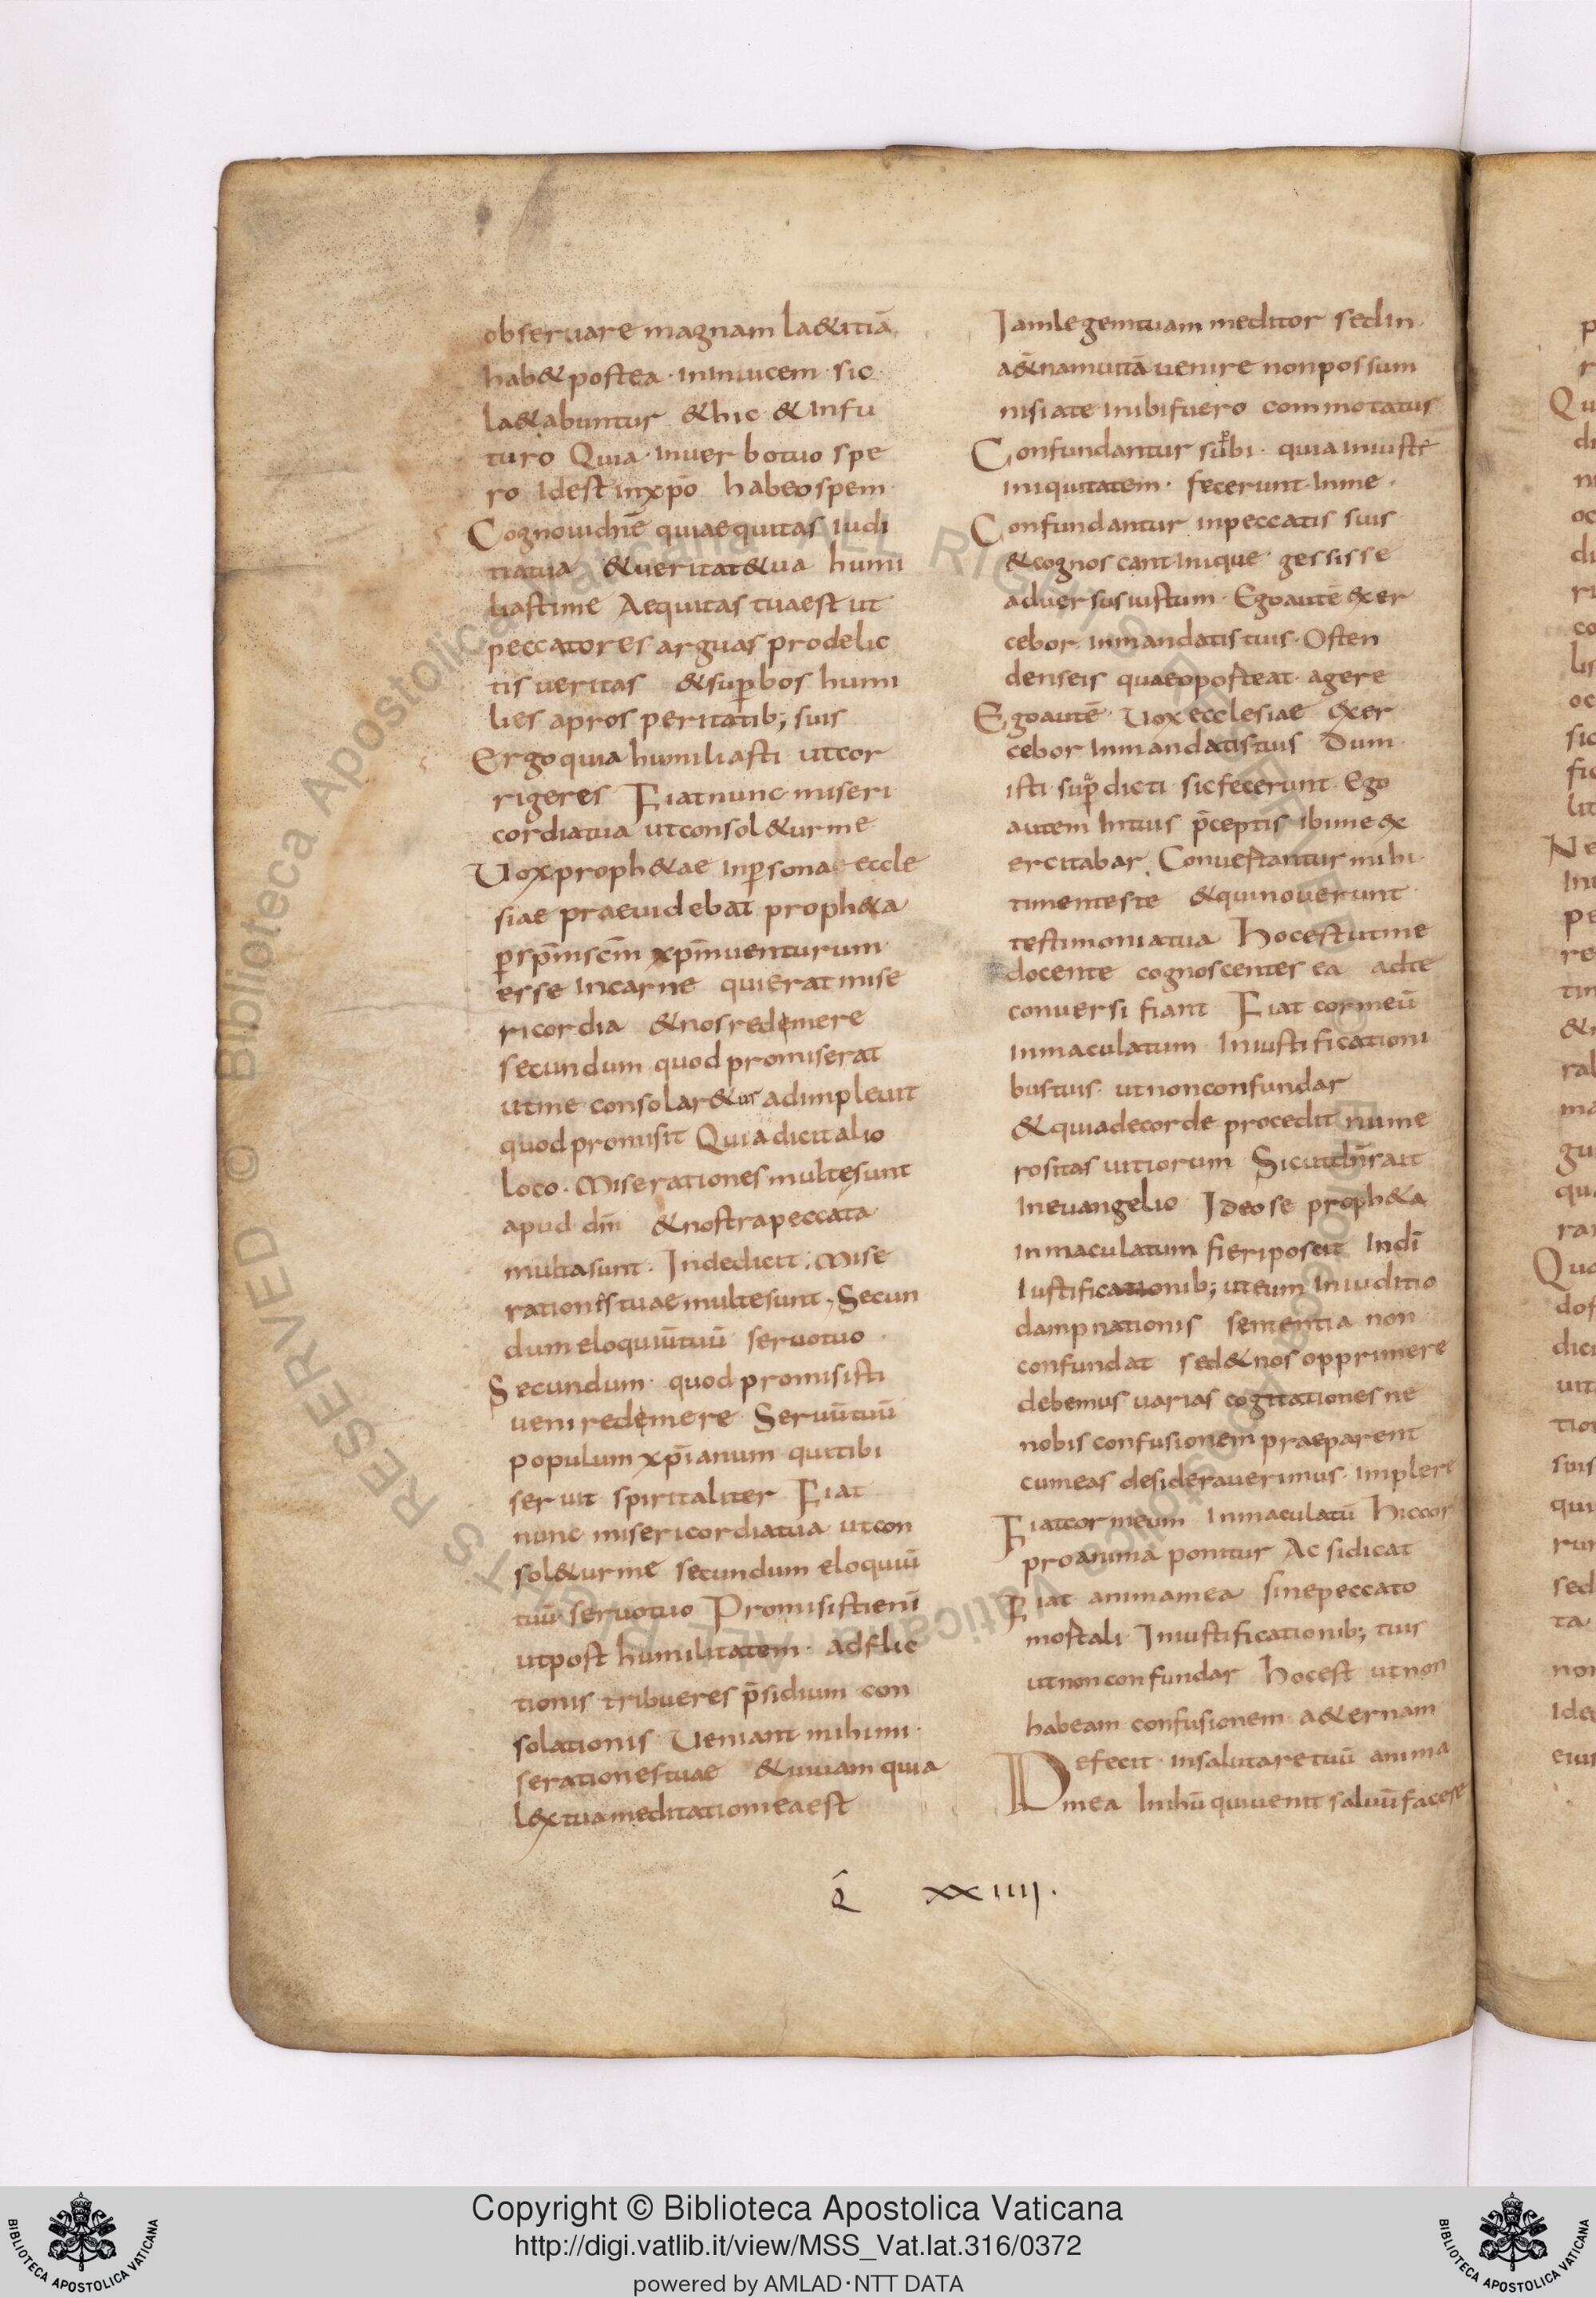 obseruare magnam la&itiā
hab& postea · ininuicem · sic
la&abuntur &hic & infu
turo Quia · inuerbotuo spe
ro idest inxp̄o habeospem
Cognouidn̄e quiaequitas iudi
tiatua &ueritat&ua humi
liastime Aequitas tuaest ut
peccatores arguas prodelic
tis ueritas &sup̱bos humi
lies apros peritatib; suis
Ergo quia humiliasti utcor
rigeres Fiatnunc miseri
cordiatua utconsol&urme
Uox proph&ae inp̱sona eccle
siae praeuidebat proph&a
p̱sp̄msc̄m xp̄muenturum
esse incarne quierat mise
ricordia &nosredemere
secundum quod promiserat
utme consolar&ur adimpleuit
quod promisit Quia dicit alio
loco · Miserationes multesunt
apud dm̄ &nostra peccata
multasunt · Indedicit; Mise
rationistuae multesunt, Secun
dum eloquiūtuū seruotuo ·
Secundum · quod promisisti
ueni redemere Seruūtuū
populum xp̄ianum quitibi
seruit spiritaliter Fiat
nunc misericordiatua utcon
sol&urme secundum eloquiū
tuū seruotuo Promisistienī
utpost humilitatem · adflic
tionis tribueres p̄sidium con
solationis · Ueniant mihimi
serationestuae &uiuam quia
l&xtuameditatiomeaest
Iamlegemtuam meditor sedin
a&̄namuitā uenire nonpossum
nisiate inibifuero commotatus
Confundantur sup̱bi · quia iniuste
iniquitatem · fecerunt inme ·
Confundantur inpeccatis suis
&cognoscant inique gessisse
aduersus iustum · Egoautē exer
cebor inmandatis tuis · Osten
denseis quaeoposteat agere
Egoautē · Uox ecclesiae exer
cebor inmandatistuis Dum
isti sup̱dicti sicfecerunt Ego
autem intuis p̄ceptis ibime ex
ercitabar Conuertantur mihi ·
timenteste &quinouerunt
testimoniatua Hocestutme
docente cognoscentes ea adte
conuersi fiant Fiat cormeū
inmaculatum iniustificationi
bustuis utnonconfundar
&quiadecorde procedit nume
rositas uitiorum Sicut dn̄s ait
ineuangelio Ideose proph&a
inmaculatum fieriposcit Indī
iustificationib; uteum iniuditio
dampnationis sententia non
confundat sed&nos opprimere
debemus uarias cogitationesne
nobis confusionem praeparent
cumeas desiderauerimus · implere
Fiatcormeum inmaculatū Hiccor
proanima ponitur Ac sidicat
Fiat animamea sinepeccato
mortali Iniustificationib; tuis
utnonconfundar hocest utnon
habeam confusionem a&ernam
Defecit insalutaretuū anima
mea inih̄ū quiuenit saluūfacere
Q XXIIII ·
Copyright © Biblioteca Apostolica Vaticana
http://digi.vatlib.it/view/MSS_Vat.lat.316/0372
powered by AMLAD·NTT DATA
BIBLIOTECA APOSTOLICA VATICANA
BIBLIOTECA APOSTOLICA VATICANA